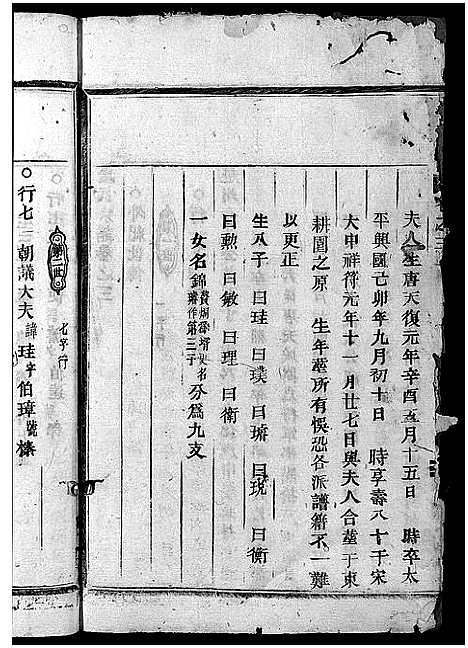 夫人生唐天復元年辛酉五月十五日 時卒太
平興國己卯年九月初十日 時享壽八十于宋
大中祥符元年十一月廿七日與夫人合塟于東
耕園之原 生年塟所有悞恐各派譜籍不一難
以更正
生八子 曰珪 曰璞 曰瑭 曰琓 曰衡
曰勲 曰敏 曰理 曰衛
一女名錦 分爲九支
第二世
七字行
○行七 朝議大夫諱珪字伯璋號㭐